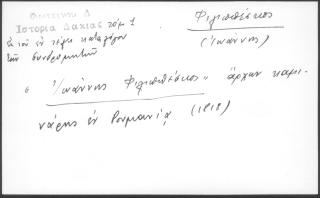 Φωτεινοῦ Δ
Ἱστορία Δακίας τόμ 1
ἐκ τοῦ ἐν τέλει καταλόγου
τῶν συνδρομητῶν
Φιλιππέσκος
(Ἰωάννης)
" Ἰωάννης Φιλιππέσκος " ἄρχων καμι-
νάρης ἐν Ρουμανίᾳ (1818)